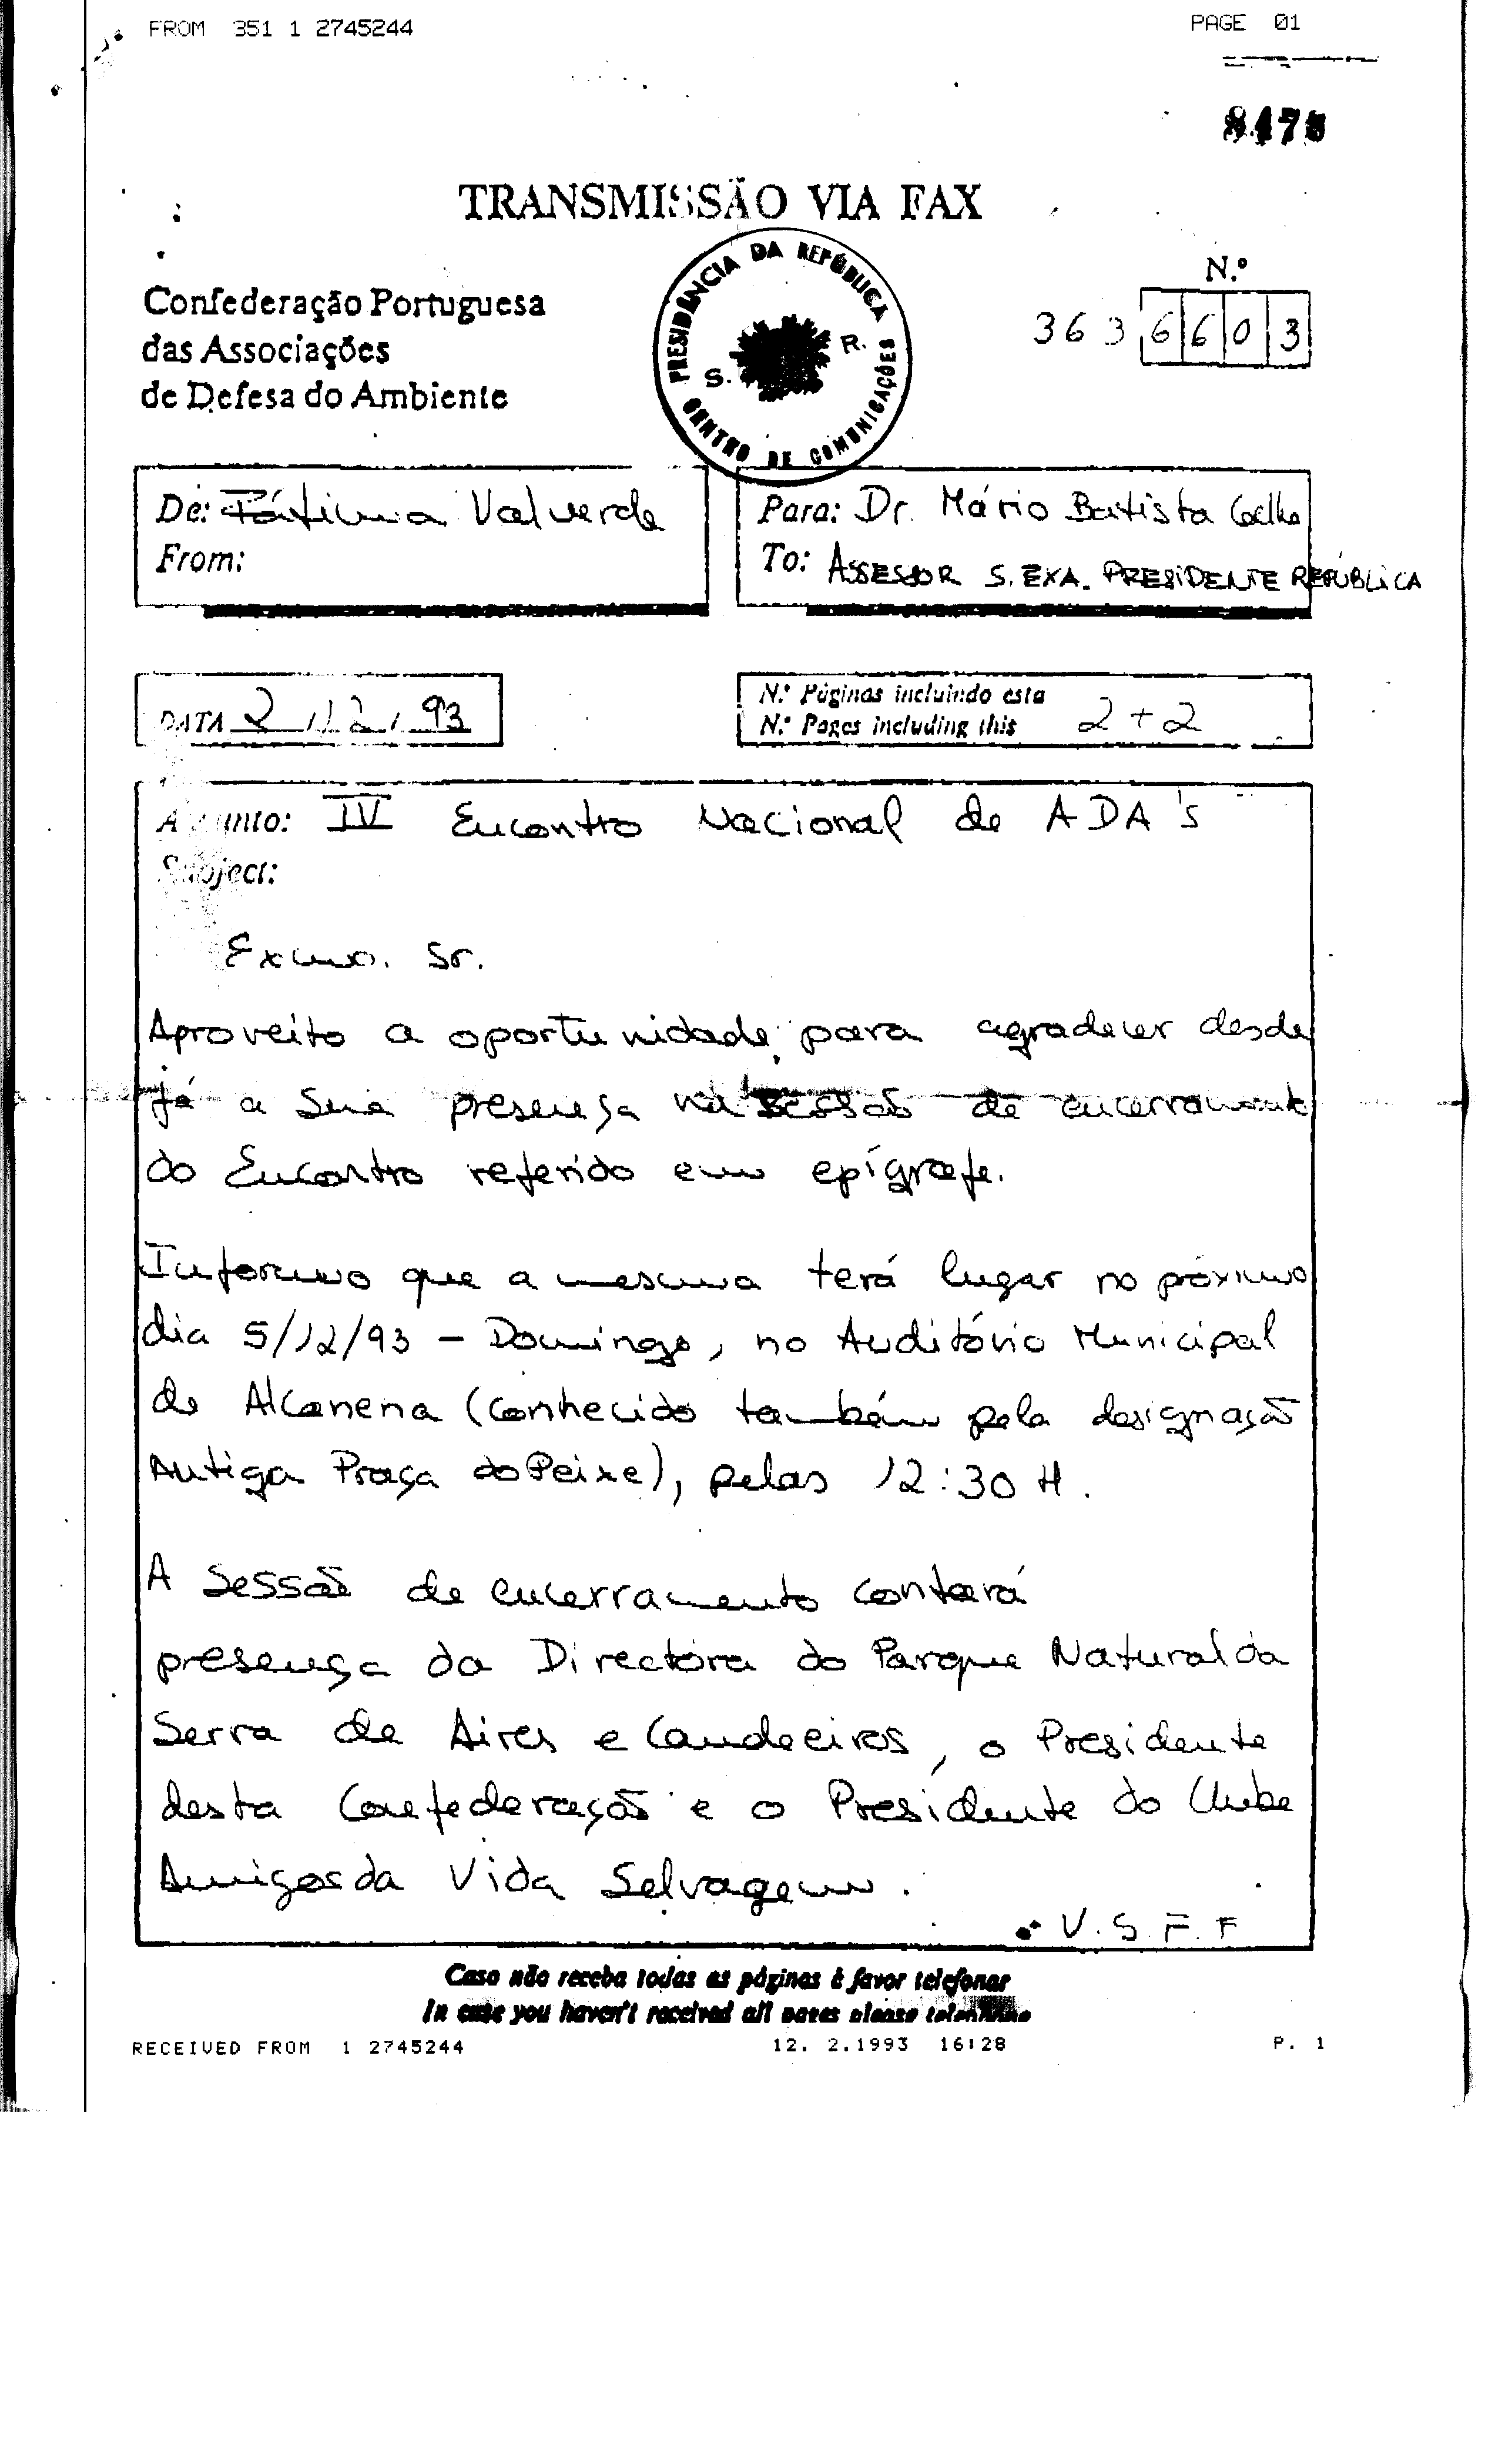 FROM 351 1 2745244 PAGE 01
TRANSMISSÃO VIA FAX
Confederação Portuguesa
das Associações
de Defesa do Ambiente
PRESIDÊNCIA DA REPÚBLICA
S. R.
CENTRO DE COMUNICAÇÕES
N.º
363 6603
De: Fátima Valverde
From:
Para: Dr. Mário Batista Coelho
To: ASSESSOR S. EXA. PRESIDENTE REPÚBLICA
DATA 2/12/93
N.º Páginas incluindo esta
N.º Pages including this 2+2
Assunto: IV Encontro Nacional de ADA's
Subject:
Exmo. Sr.
Aproveito a oportunidade para agradecer desde
já a sua presença na sessão de encerramento
do Encontro referido em epígrafe.
Informo que a mesma terá lugar no próximo
dia 5/12/93 - Domingo, no Auditório Municipal
de Alcanena (conhecido também pela designação
Antiga Praça do Peixe), pelas 12:30 H.
A Sessão de encerramento contará
presença da Directora do Parque Natural da
Serra de Aires e Candeeiros, o Presidente
desta Confederação e o Presidente do Clube
Amigos da Vida Selvagem.
V.S.F.F
Caso não receba todas as páginas é favor telefonar
In case you haven't received all pages please telephone
RECEIVED FROM 1 2745244 12. 2.1993 16:28 P. 1